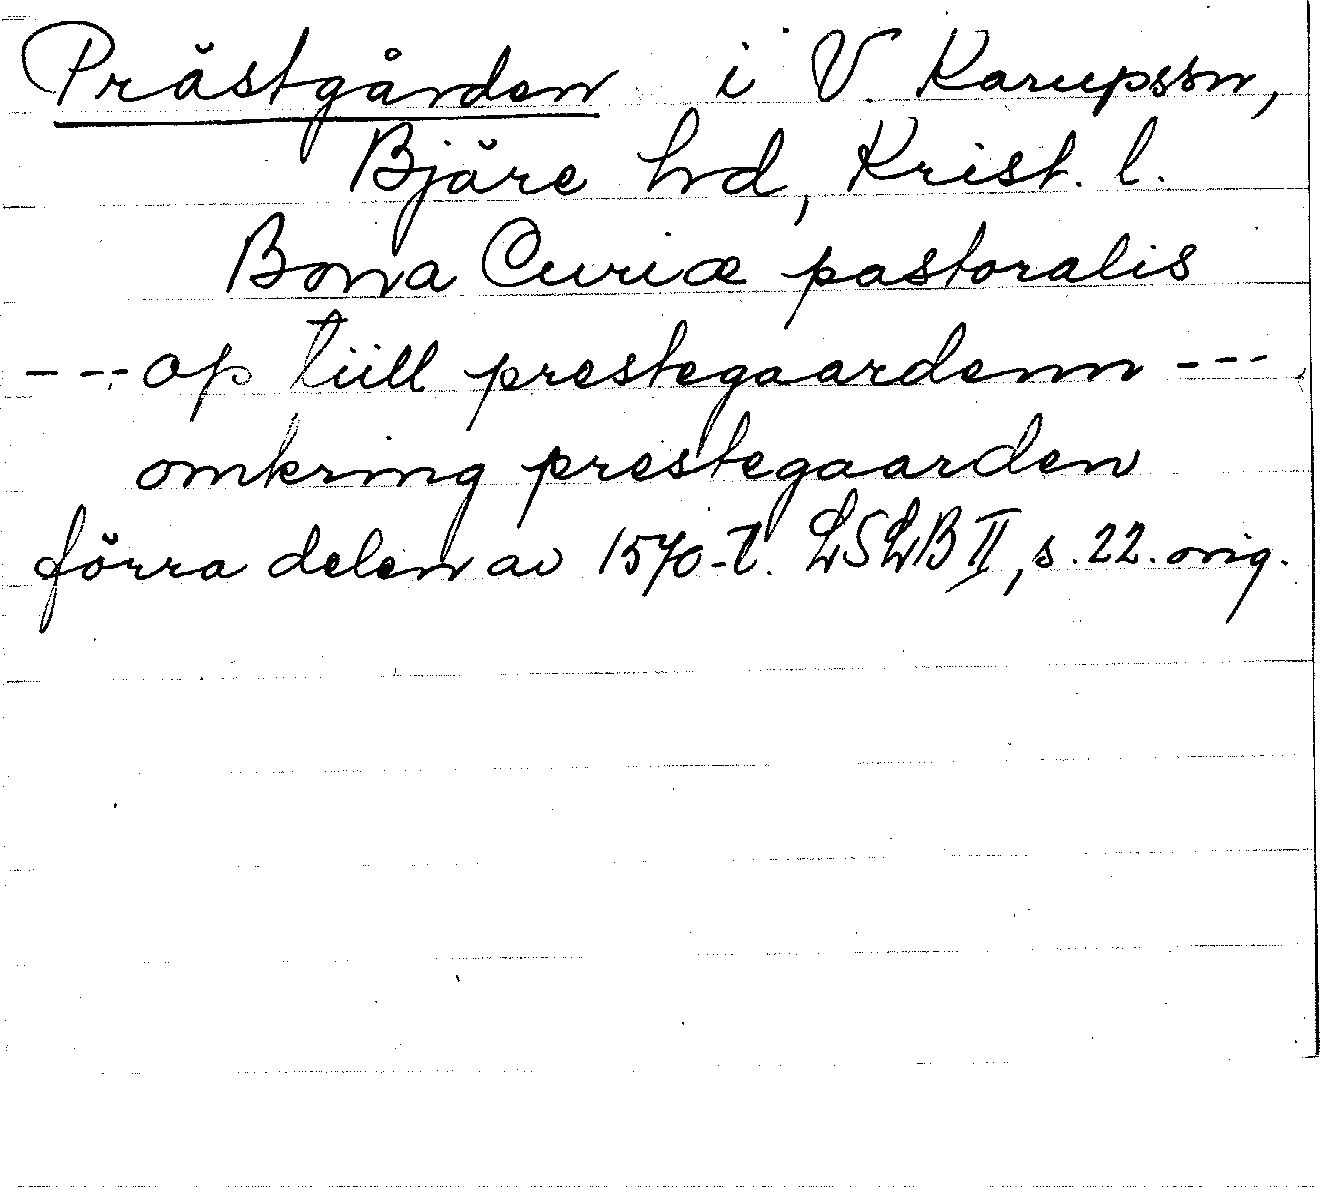 Prästgården i V. Karupssn,
Bjäre hrd, Krist. l.
Bona Curiæ pastoralis
---op tiill prestegaardenn---
omkring prestegaarden
förra delen av 1570-t. LSLB II, s. 22. orig.